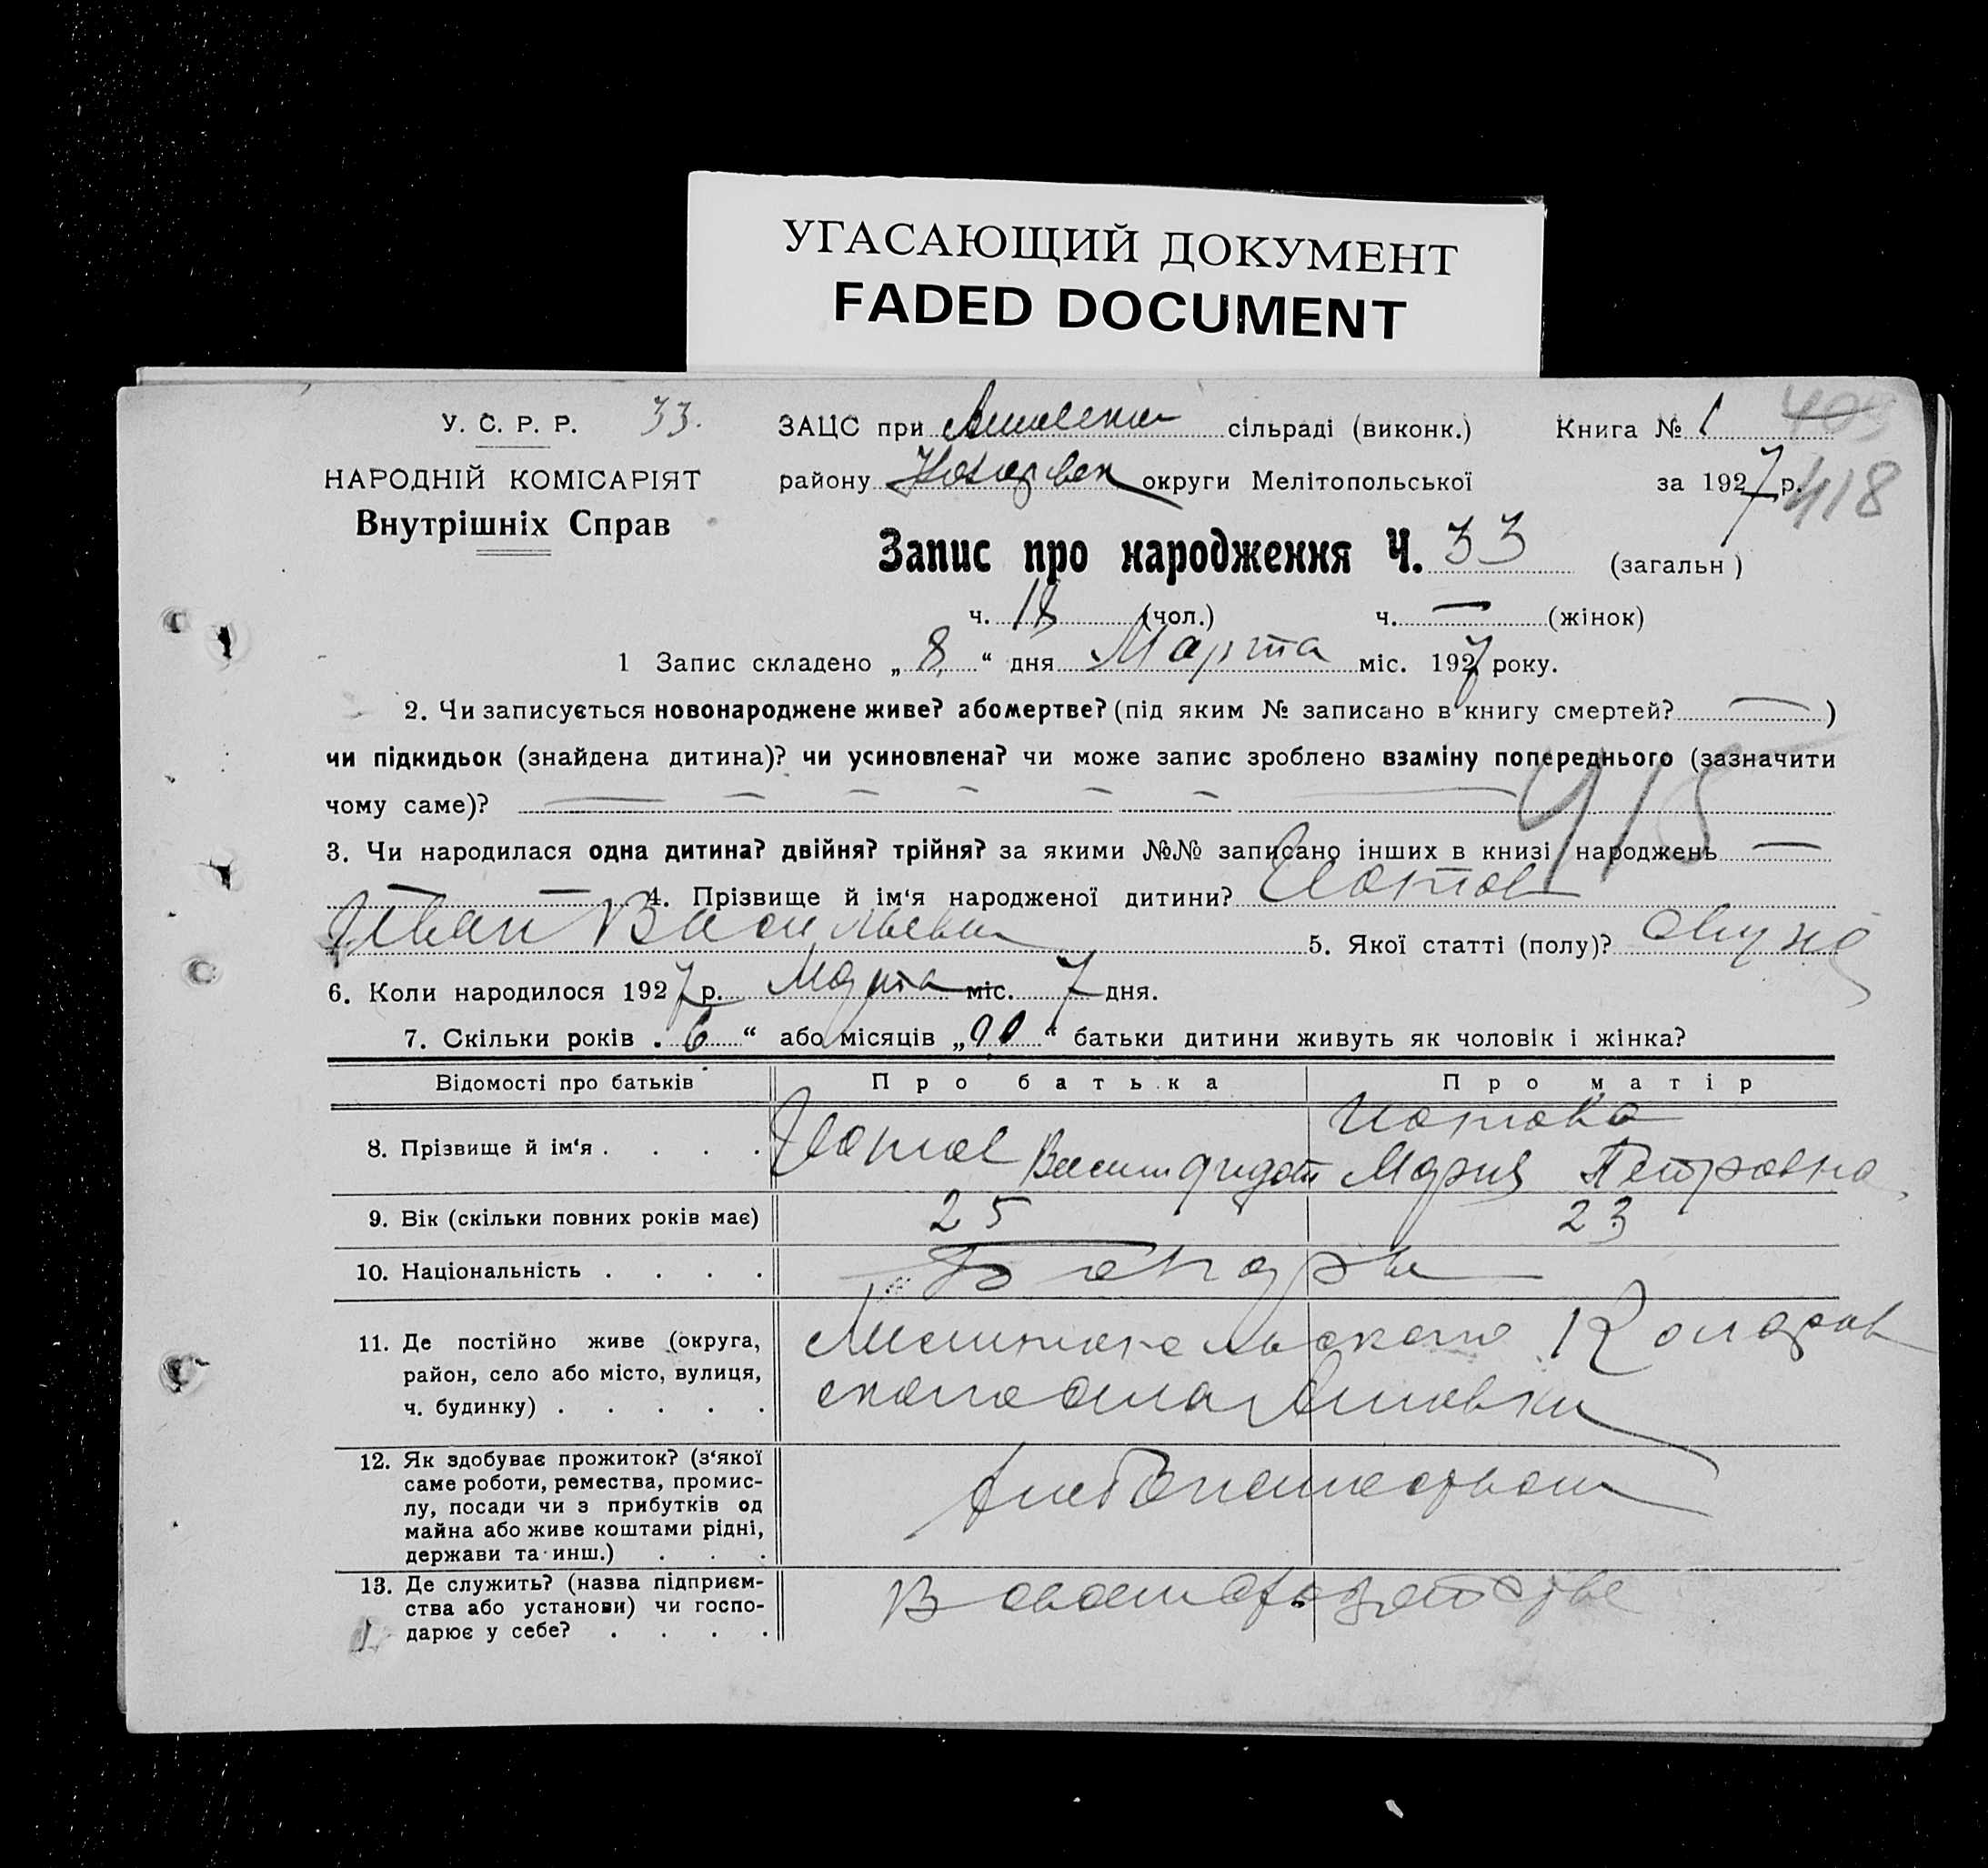 УГАСАЮЩИЙ ДОКУМЕНТ
FADED DOCUMENT
У. С. Р. Р. 33.
ЗАЦС при сільраді (виконк.) Книга № 1 409
НАРОДНІЙ КОМІСАРІЯТ
району округи Мелітопольської за 1927 р. 418
Внутрішніх Справ
Запис про народження Ч. 33 (загальн)
ч. 18 (чол.) ч. — (жінок)
1 Запис складено „ 8 “ дня Марта міс. 1927 року.
2. Чи записується новонароджене живе? або мертве? (під яким № записано в книгу смертей? — )
чи підкидьок (знайдена дитина)? чи усиновлена? чи може запис зроблено взаміну попереднього (зазначити
чому саме)? — — — — — — —
415
3. Чи народилася одна дитина? двійня? трійня? за якими №№ записано інших в книзі народжень —
— — 4. Прізвище й ім‘я народженої дитини?
Иван Васильевич 5. Якої статті (полу)?
6. Коли народилося 1927 р. Марта міс. 7 дня.
7. Скільки років „ 6 “ або місяців „ “ батьки дитини живуть як чоловік і жінка?
Відомості про батьків Про батька Про матір
8. Прізвище й ім‘я . . . .
Мария Петровна
9. Вік (скільки повних років має) 25 23
10. Національність . . . .
11. Де постійно живе (округа,
район, село або місто, вулиця,
ч. будинку) . . . . .
Мелитопольского Коларов
ского села
12. Як здобуває прожиток? (з‘якої
саме роботи, ремества, промис-
лу, посади чи з прибутків од
майна або живе коштами рідні,
держави та инш.) . . .
Хлебопашеством
13. Де служить? (назва підприєм-
ства або установи) чи госпо-
дарює у себе? . . . .
В своем